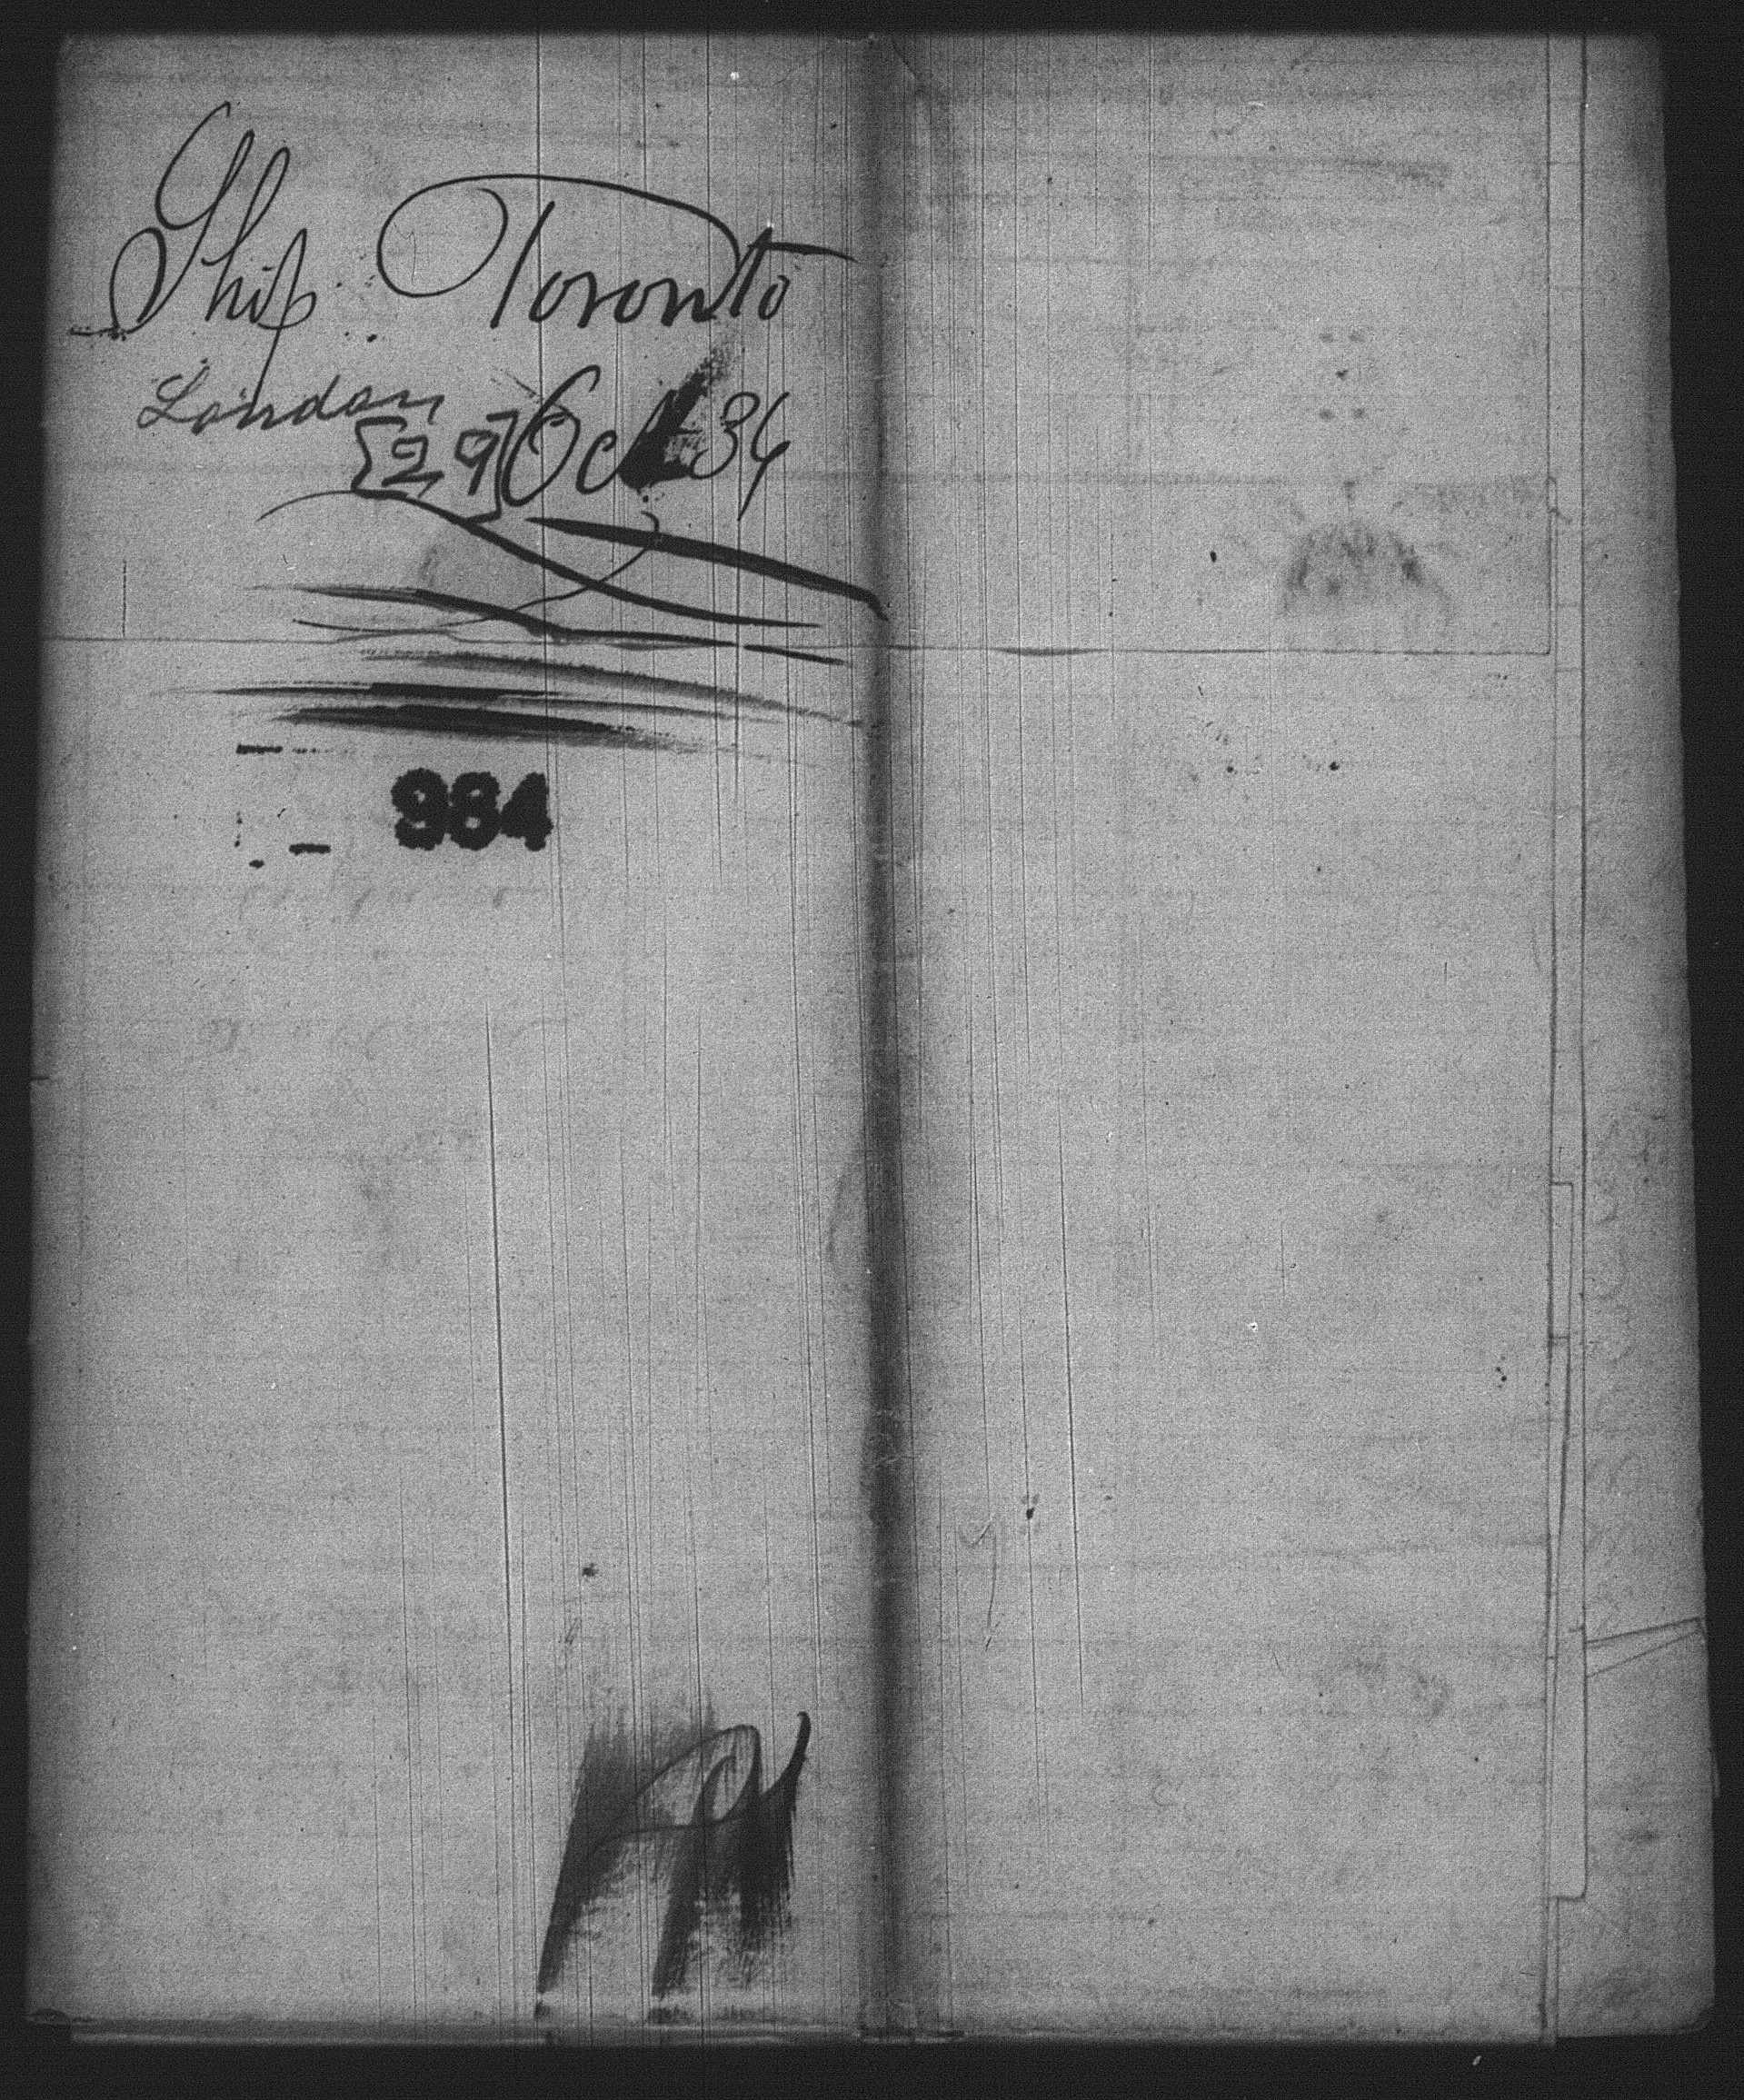 Ship Toronto
London
[29] Oct 36
984